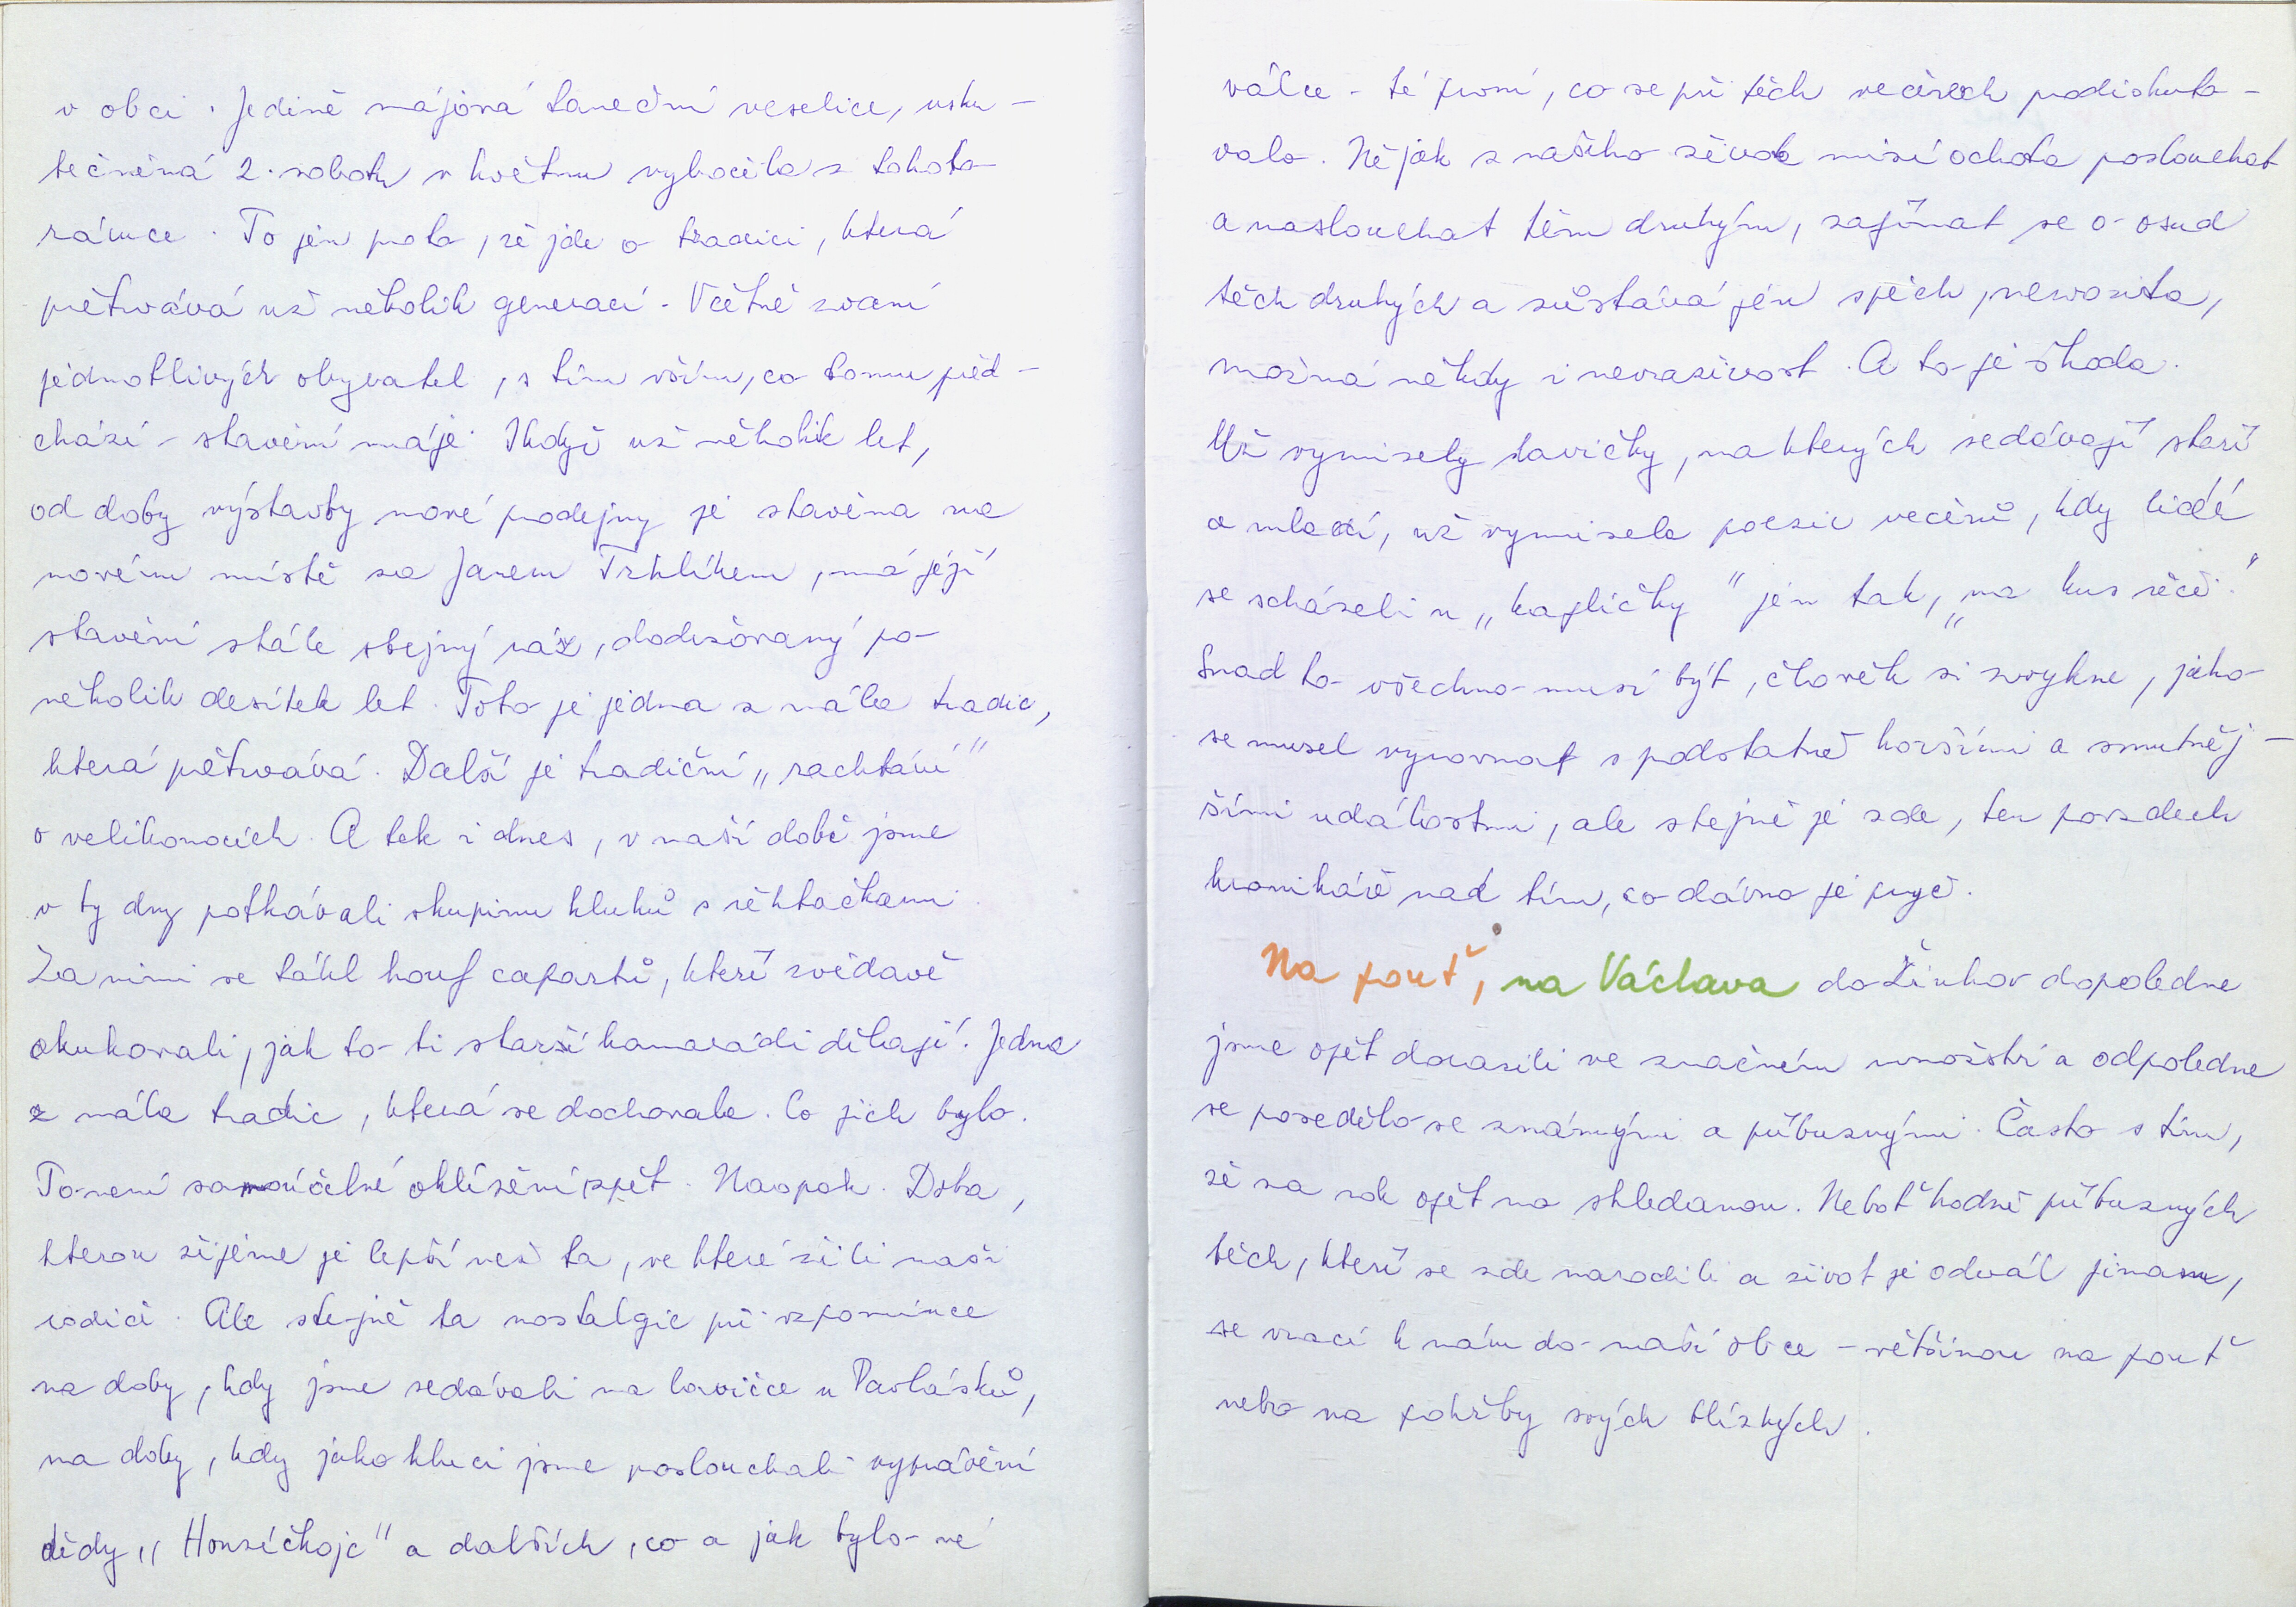 v obci. Jedině májová taneční veselice, usku-
tečněná 2. sobotu v květnu vybočila z tohoto
rámce. To jen proto, že jde o tradici, která
přetrvává už několik generací. Včetně zvaní
jednotlivých obyvatel, s tím vším, co tomu před-
chází - stavění máje. Ikdyž už několik let,
od doby výstavby nové prodejny je stavěna na
novém místě za Janem Trhlíkem, má její
stavění stále stejný ráz, dodržovaný po
několik desítek let. Toto je jedna z mála tradic,
která přetrvává. Další je tradiční „rachtání"
o velikonocích. A tak i dnes, v naší době jsme
v ty dny potkávali skupinu kluků s řehtačkami.
Za nimi se táhl houf capartů, kteří zvědavě
okukovali, jak to ti starší kamarádi dělají. Jedna
z mála tradic, která se dochovala. Co jich bylo.
To není samoúčelné ohlížení zpět. Naopak. Doba,
kterou žijeme je lepší než ta, ve které žili naši
rodiče. Ale stejně ta nostalgie při vzpomínce
na doby, kdy jsme sedávali na lavičce u Pavlásků,
na doby, kdy jako kluci jsme poslouchali vyprávění
dědy „Honzíčkojc" a dalších, co a jak bylo ve
válce - té první, co se při těch večerech prodiskuto-
valo. Nějak z našeho života mizí ochota poslouchat
a naslouchat těm druhým, zajímat se o osud
těch druhých a zůstává jen spěch, nervozita,
možná někdy i nevraživost. A to je škoda.
Už vymizely lavičky, na kterých sedávají staří
a mladí, už vymizela poezie večerů, kdy lidé
se scházeli u „kapličky" jen tak, „na kus řeči."
Snad to všechno musí být, člověk si zvykne, jako
se musel vyrovnat s podstatně horšími a smutněj-
šími událostmi, ale stejně je zde, ten povzdech
kronikáře nad tím, co dávno je pryč.
Na pouť, na Václava do Žinkov dopoledne
jsme opět dorazili ve značném množství a odpoledne
se posedělo se známými a příbuznými. Často s tím,
že za rok opět na shledanou. Neboť hodně příbuzných
těch, kteří se zde narodili a život je odvál jinam,
se vrací k nám do naší obce - většinou na pouť
nebo na pohřby svých blízkých.